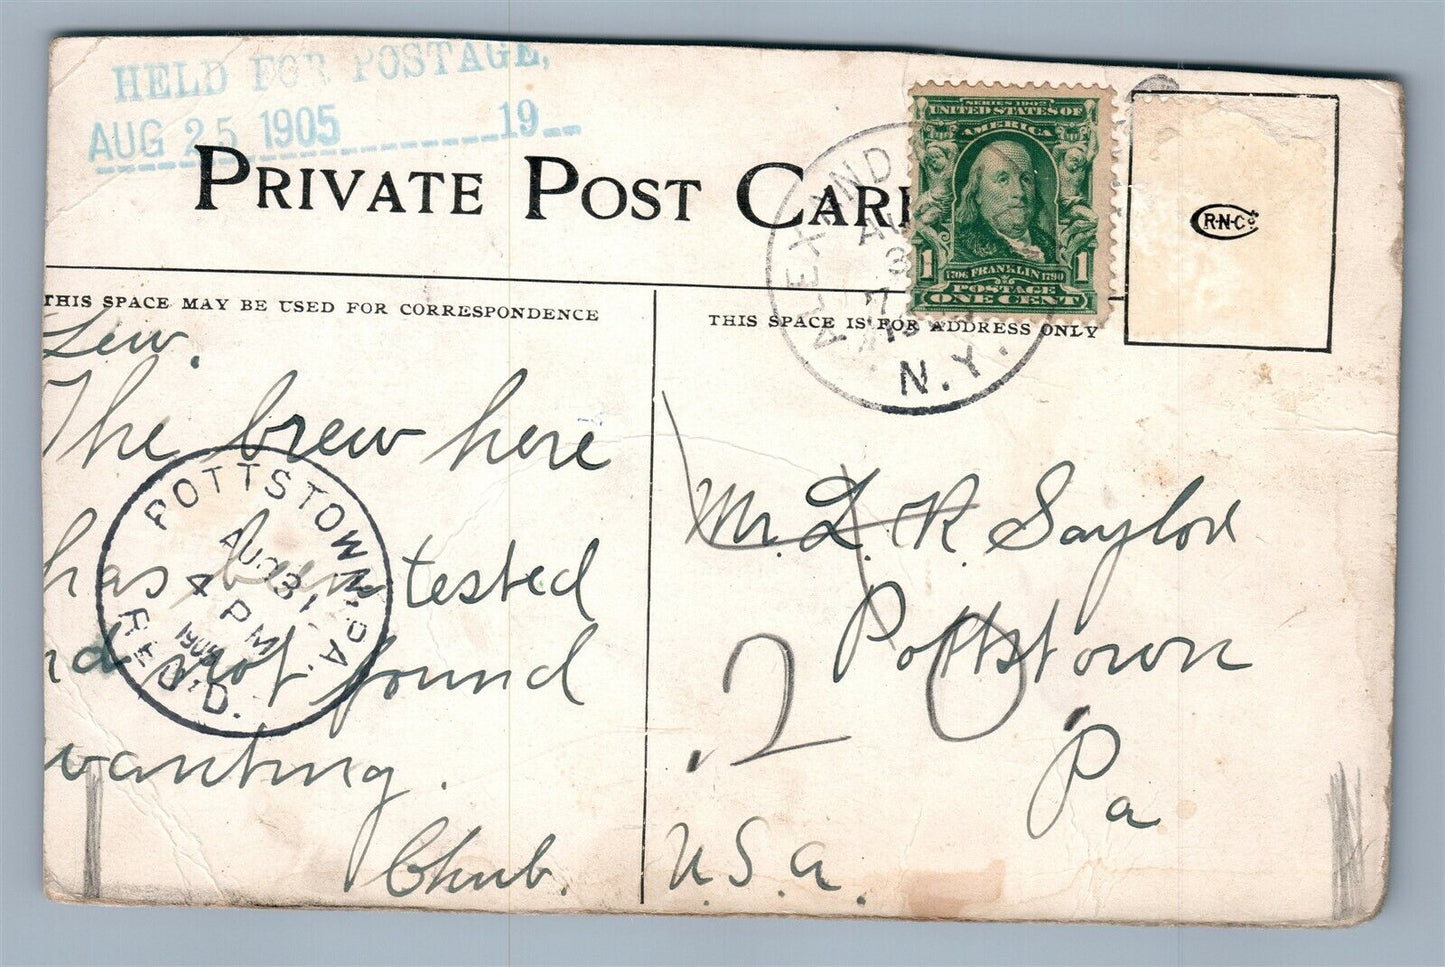 HELD FOR POSTAGE,
AUG 25 1905 19
PRIVATE POST CAR
SERIES 1902
UNITED STATES OF
AMERICA
1 1706 FRANKLIN 1790 1
POSTAGE
ONE CENT
R.N.Co.
ALEXAND
N.Y.
THIS SPACE MAY BE USED FOR CORRESPONDENCE
THIS SPACE IS FOR ADDRESS ONLY
Lew.
The brew here
has been tested
nd not found
wanting.
Chub.
POTTSTOWN, PA.
AUG 31
4 PM
1905
REC'D.
Mr. L. R. Saylor
Pottstown
Pa
U.S.A.
20